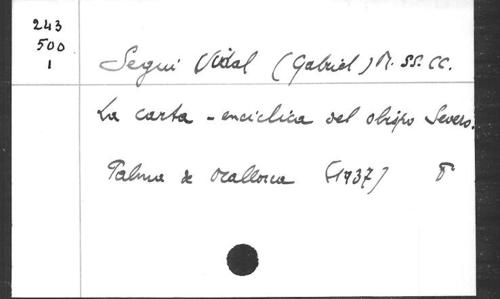 243
500
1
Segui Vidal (Gabriel) M. SS. CC.
La carta-enciclica del obispo Severo.
Palma de Mallorca (1937)